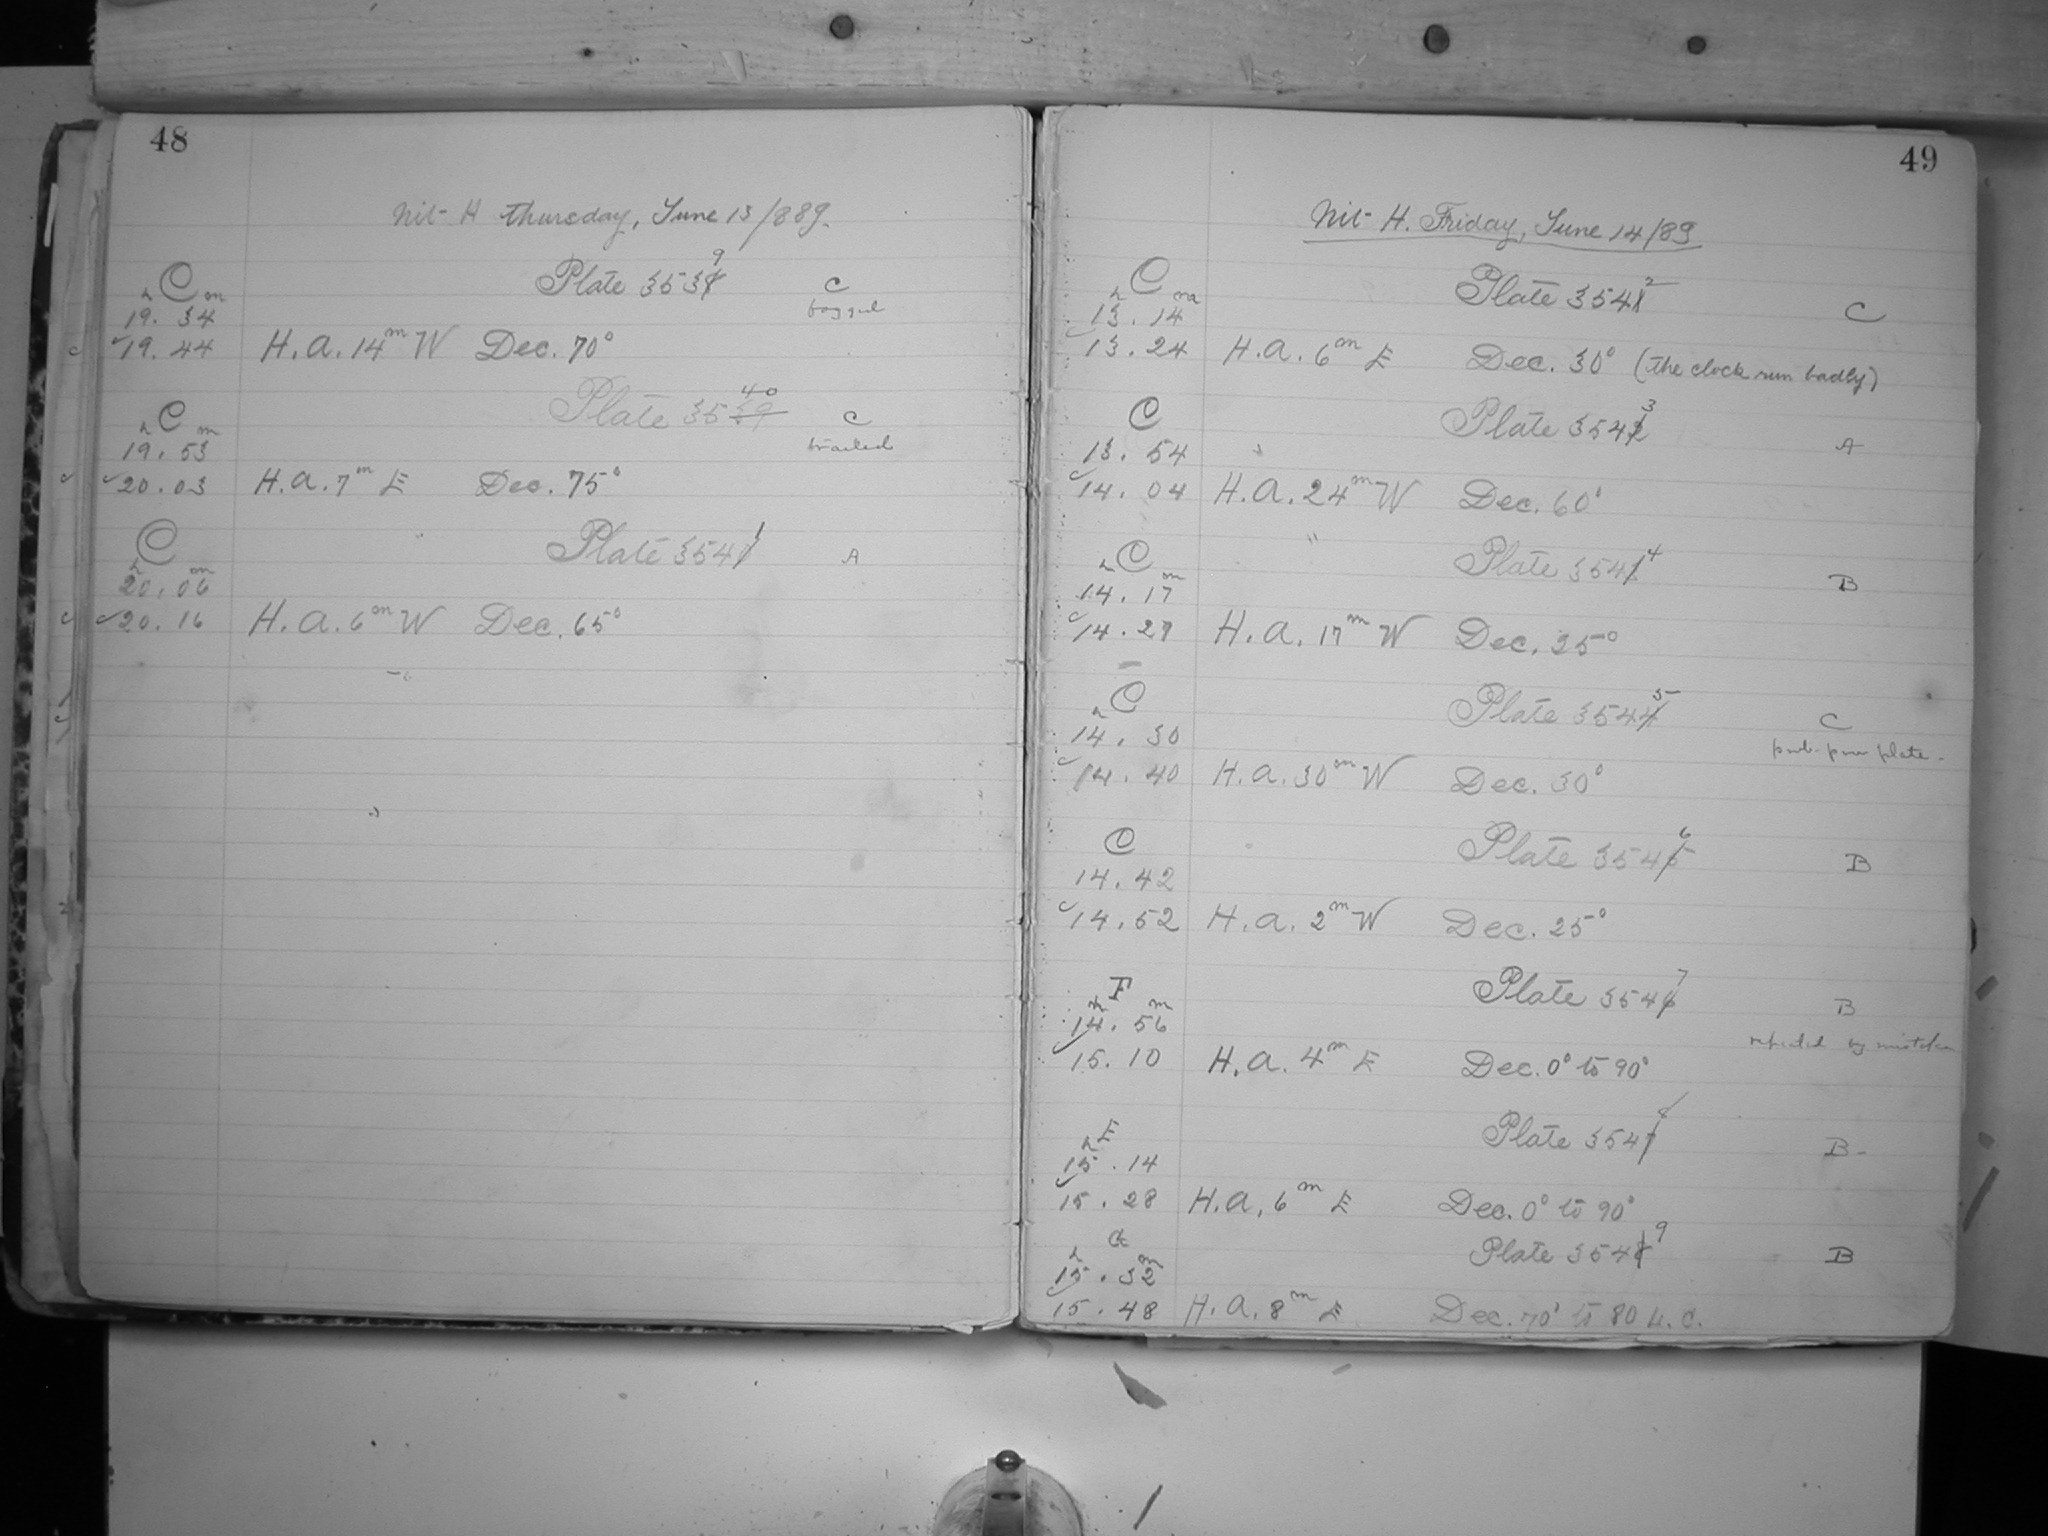 48
Nit H Thursday, June 13/889.
C Plate 3538 9 C
h m
19.34 foggal
19.44 H.A. 14m W Dec. 70°
Plate 3539 40
C C
h m trailed
19.53
20.03 H.A. 7m E Dec. 75°
C Plate 3540 1 A
h m
20.06
20.16 H.A. 6m W Dec. 65°
49
Nit H. Friday, June 14/89
C Plate 3541 2 C
h m
13.14
13.24 H.A. 6m E Dec. 30° (the clock run badly)
C Plate 3542 3 A
13.54
14.04 H.A. 24m W Dec. 60°
C Plate 3543 4 B
h m
14.17
14.27 H.A. 17m W Dec. 25°
C Plate 3544 5 C
h
14.30 plate
14.40 H.A. 30m W Dec. 30°
C Plate 3545 6 B
14.42
14.52 H.A. 2m W Dec. 25°
F Plate 3546 7 B
h m
14.56 repeated by mistake
15.10 H.A. 4m E Dec. 0° to 90°
E Plate 3547 8 B
h
15.14
15.28 H.A. 6m E Dec. 0° to 90°
Plate 3548 9 B
h m
15.32
15.48 H.A. 8m E Dec. 70° to 80 L.C.